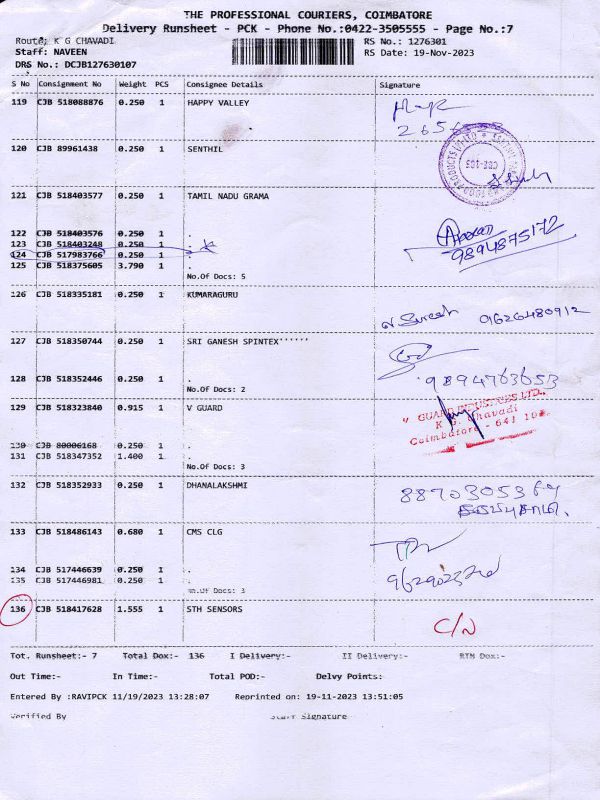 THE PROFESSIONAL COURIERS, COIMBATORE
Delivery Runsheet - PCK - Phone No.:0422-3505555 - Page No.:7
Route: K G CHAVADI
RS No.: 1276301
Staff: NAVEEN
RS Date: 19-Nov-2023
DRS No.: DCJB127630107
S No Consignment No Weight PCS Consignee Details Signature
119 CJB 518088876 0.250 1 HAPPY VALLEY
120 CJB 89961438 0.250 1 SENTHIL
121 CJB 518403577 0.250 1 TAMIL NADU GRAMA
122 CJB 518403576 0.250 1 .
123 CJB 518403248 0.250 1 .
124 CJB 517983766 0.250 1 .
9894875172
125 CJB 518375605 3.790 1 .
No.Of Docs: 5
126 CJB 518335181 0.250 1 KUMARAGURU
N Suresh 9626480912
127 CJB 518350744 0.250 1 SRI GANESH SPINTEX''''''
128 CJB 518352446 0.250 1 .
9894763653
No.Of Docs: 2
129 CJB 518323840 0.915 1 V GUARD
V GUARD INDUSTRIES LTD.,
K G Chavadi
Coimbatore - 641 105.
130 CJB 80006168 0.250 1 .
131 CJB 518347352 1.400 1 .
No.Of Docs: 3
132 CJB 518352933 0.250 1 DHANALAKSHMI
133 CJB 518486143 0.680 1 CMS CLG
134 CJB 517446639 0.250 1 .
135 CJB 517446981 0.250 1 .
No.Of Docs: 3
136 CJB 518417628 1.555 1 STH SENSORS
C/N
Tot. Runsheet:- 7 Total Dox:- 136 I Delivery:- II Delivery:- RTN Dox:-
Out Time:- In Time:- Total POD:- Delvy Points:-
Entered By :RAVIPCK 11/19/2023 13:28:07 Reprinted on: 19-11-2023 13:51:05
Verified By Staff Signature